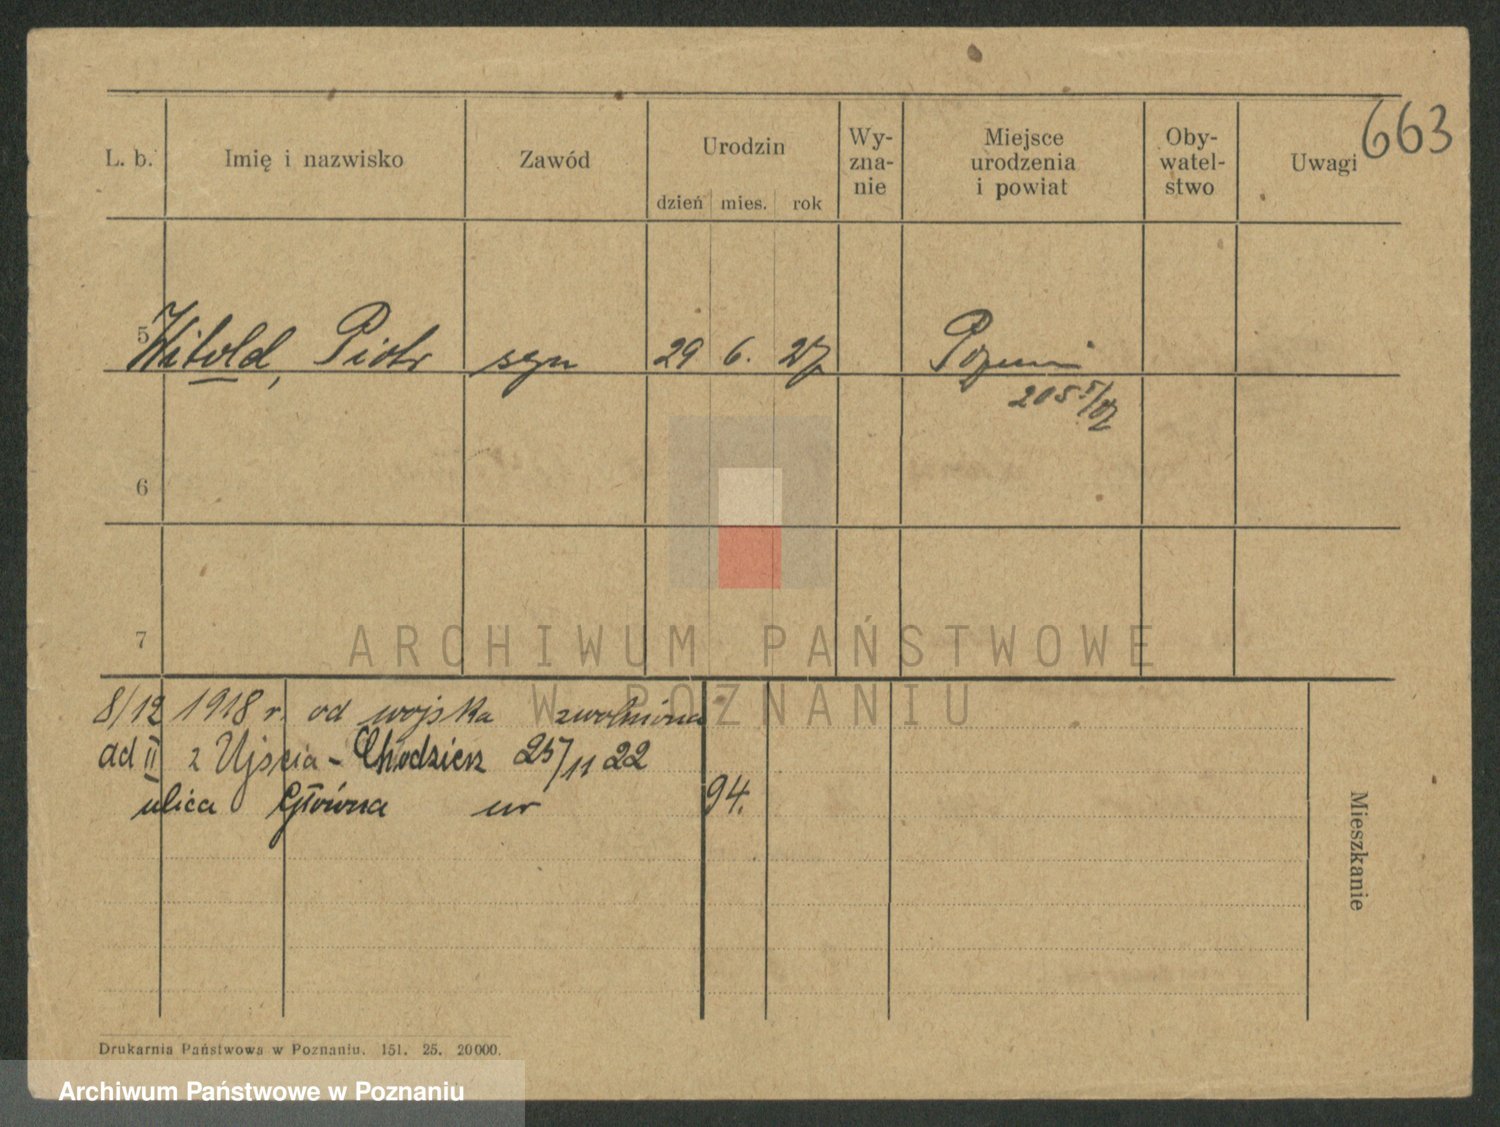 663
L. b. Imię i nazwisko Zawód Urodzin Wy-zna-nie Miejsce urodzenia i powiat Oby-watel-stwo Uwagi
dzień mies. rok
5 Witold, Piotr syn 29 6. 27 Poznań
2055/27
6
7
ARCHIWUM PAŃSTWOWE
W POZNANIU
8/12 1918 r. od wojska zwolniona
ad II z Ujścia - Chodzież 25/11 22
ulica Główna nr 94.
Mieszkanie
Drukarnia Państwowa w Poznaniu. 151. 25. 20000.
Archiwum Państwowe w Poznaniu